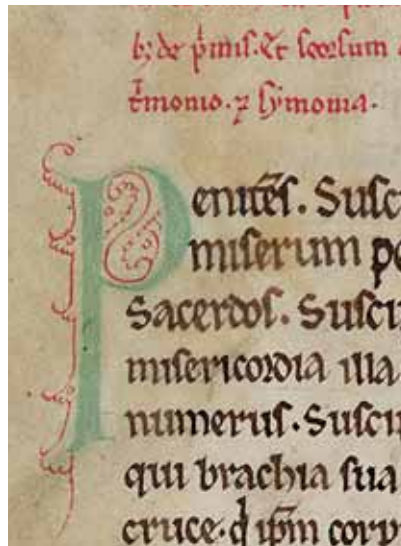 b; de p̄mis. Et seorsum
t̄monio. ⁊ symonia.
Penitēs. Susc
miserum pe
Sacerdos. Susci
misericordia illa
numerus. Susci
qui brachia sua
cruce. q̄ ip̄m corp